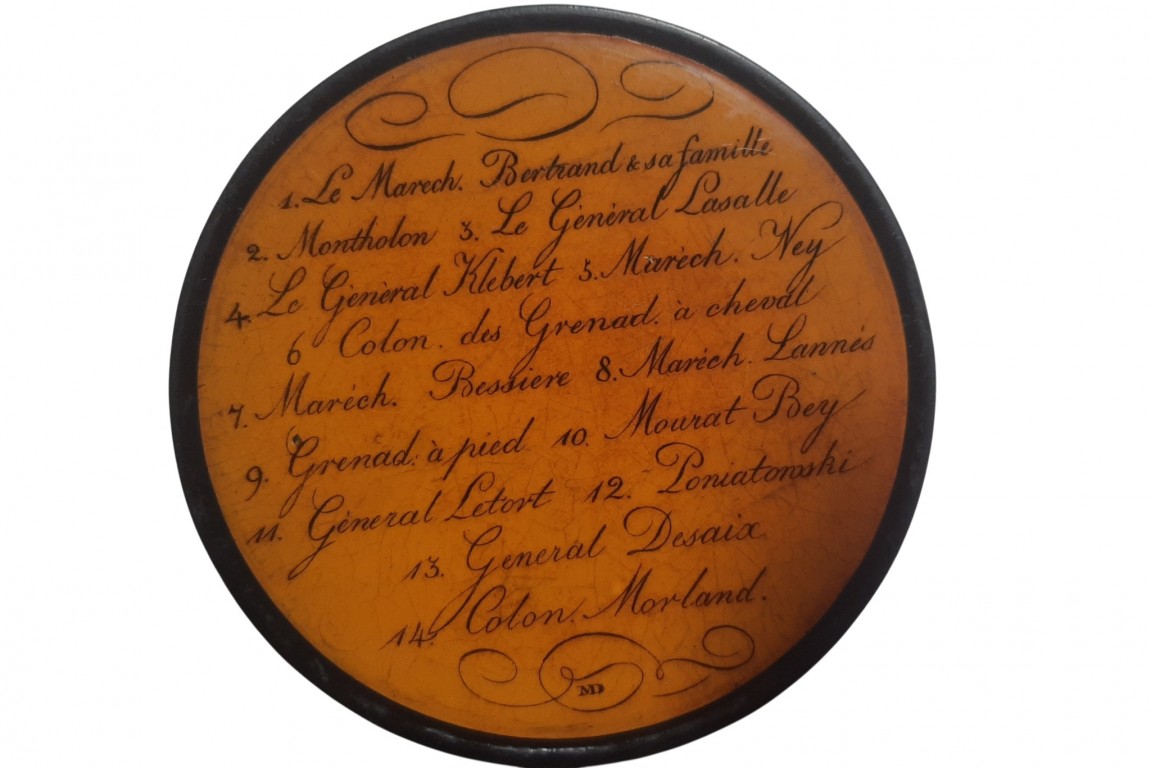 1. Le Marech. Bertrand & sa famille
2. Montholon 3. Le Général Lasalle
4. Le Général Klébert 5. Maréch. Ney
6 Colon. des Grenad. à cheval
7. Maréch. Bessiere 8. Maréch. Lannés
9. Grenad: à pied 10. Mourat Bey
11. Géneral Letort 12. Poniatowski
13. General Desaix
14. Colon. Morland.
MD